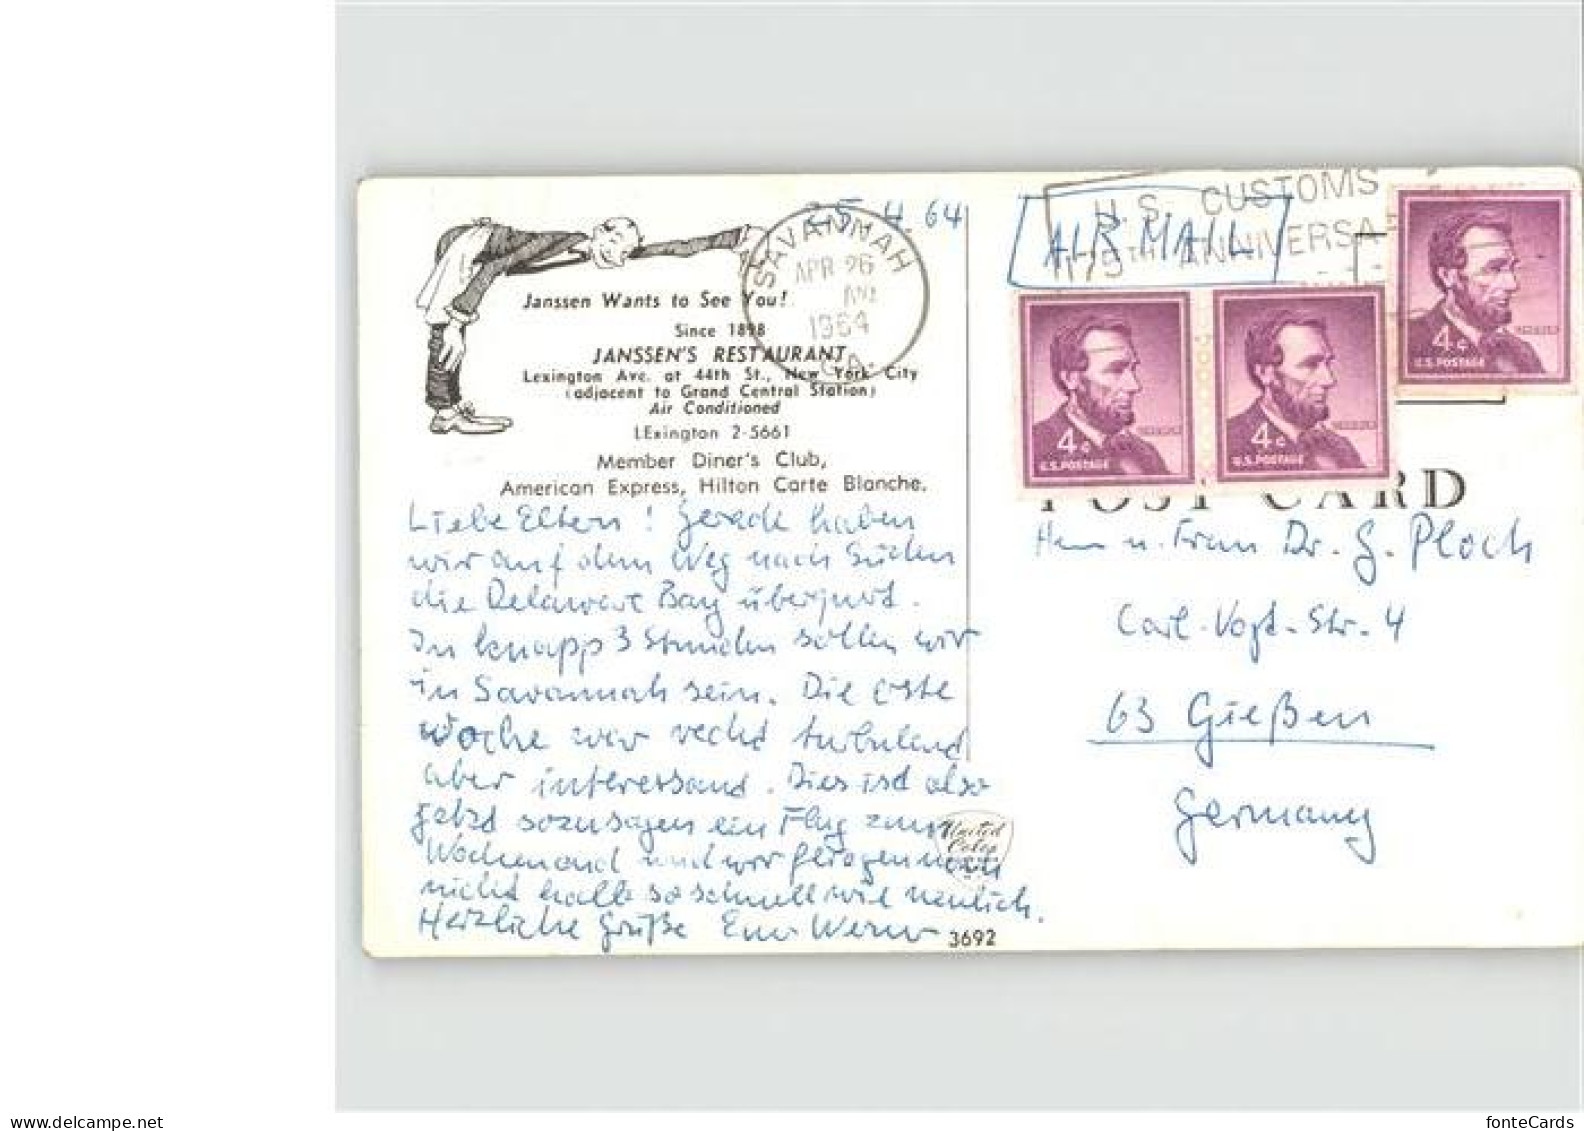 25. 4. 64
SAVANNAH
APR 26
1964
GA.
U.S. CUSTOMS
175TH ANNIVERSA
AIR MAIL
4¢
U.S. POSTAGE
4¢
U.S. POSTAGE
4¢
U.S. POSTAGE
Janssen Wants to See You!
Since 1898
JANSSEN'S RESTAURANT
Lexington Ave. at 44th St., New York City
(adjacent to Grand Central Station)
Air Conditioned
LExington 2-5661
Member Diner's Club,
American Express, Hilton Carte Blanche.
POST CARD
Liebe Eltern! Gerade haben
wir auf dem Weg nach Süden
die Delaware Bay überquert.
In knapp 3 Stunden sollen wir
in Savannah sein. Die erste
Woche war recht turbulent
aber interessant. Dies ist also
jetzt sozusagen ein Flug zum
Wochenend und wir fliegen
nicht halb so schnell wie neulich.
Herzliche Grüße Euer Werner
Herrn u. Frau Dr. G. Ploch
Carl-Vogt-Str. 4
63 Gießen
Germany
United
Color
3692
fonteCards
www.delcampe.net